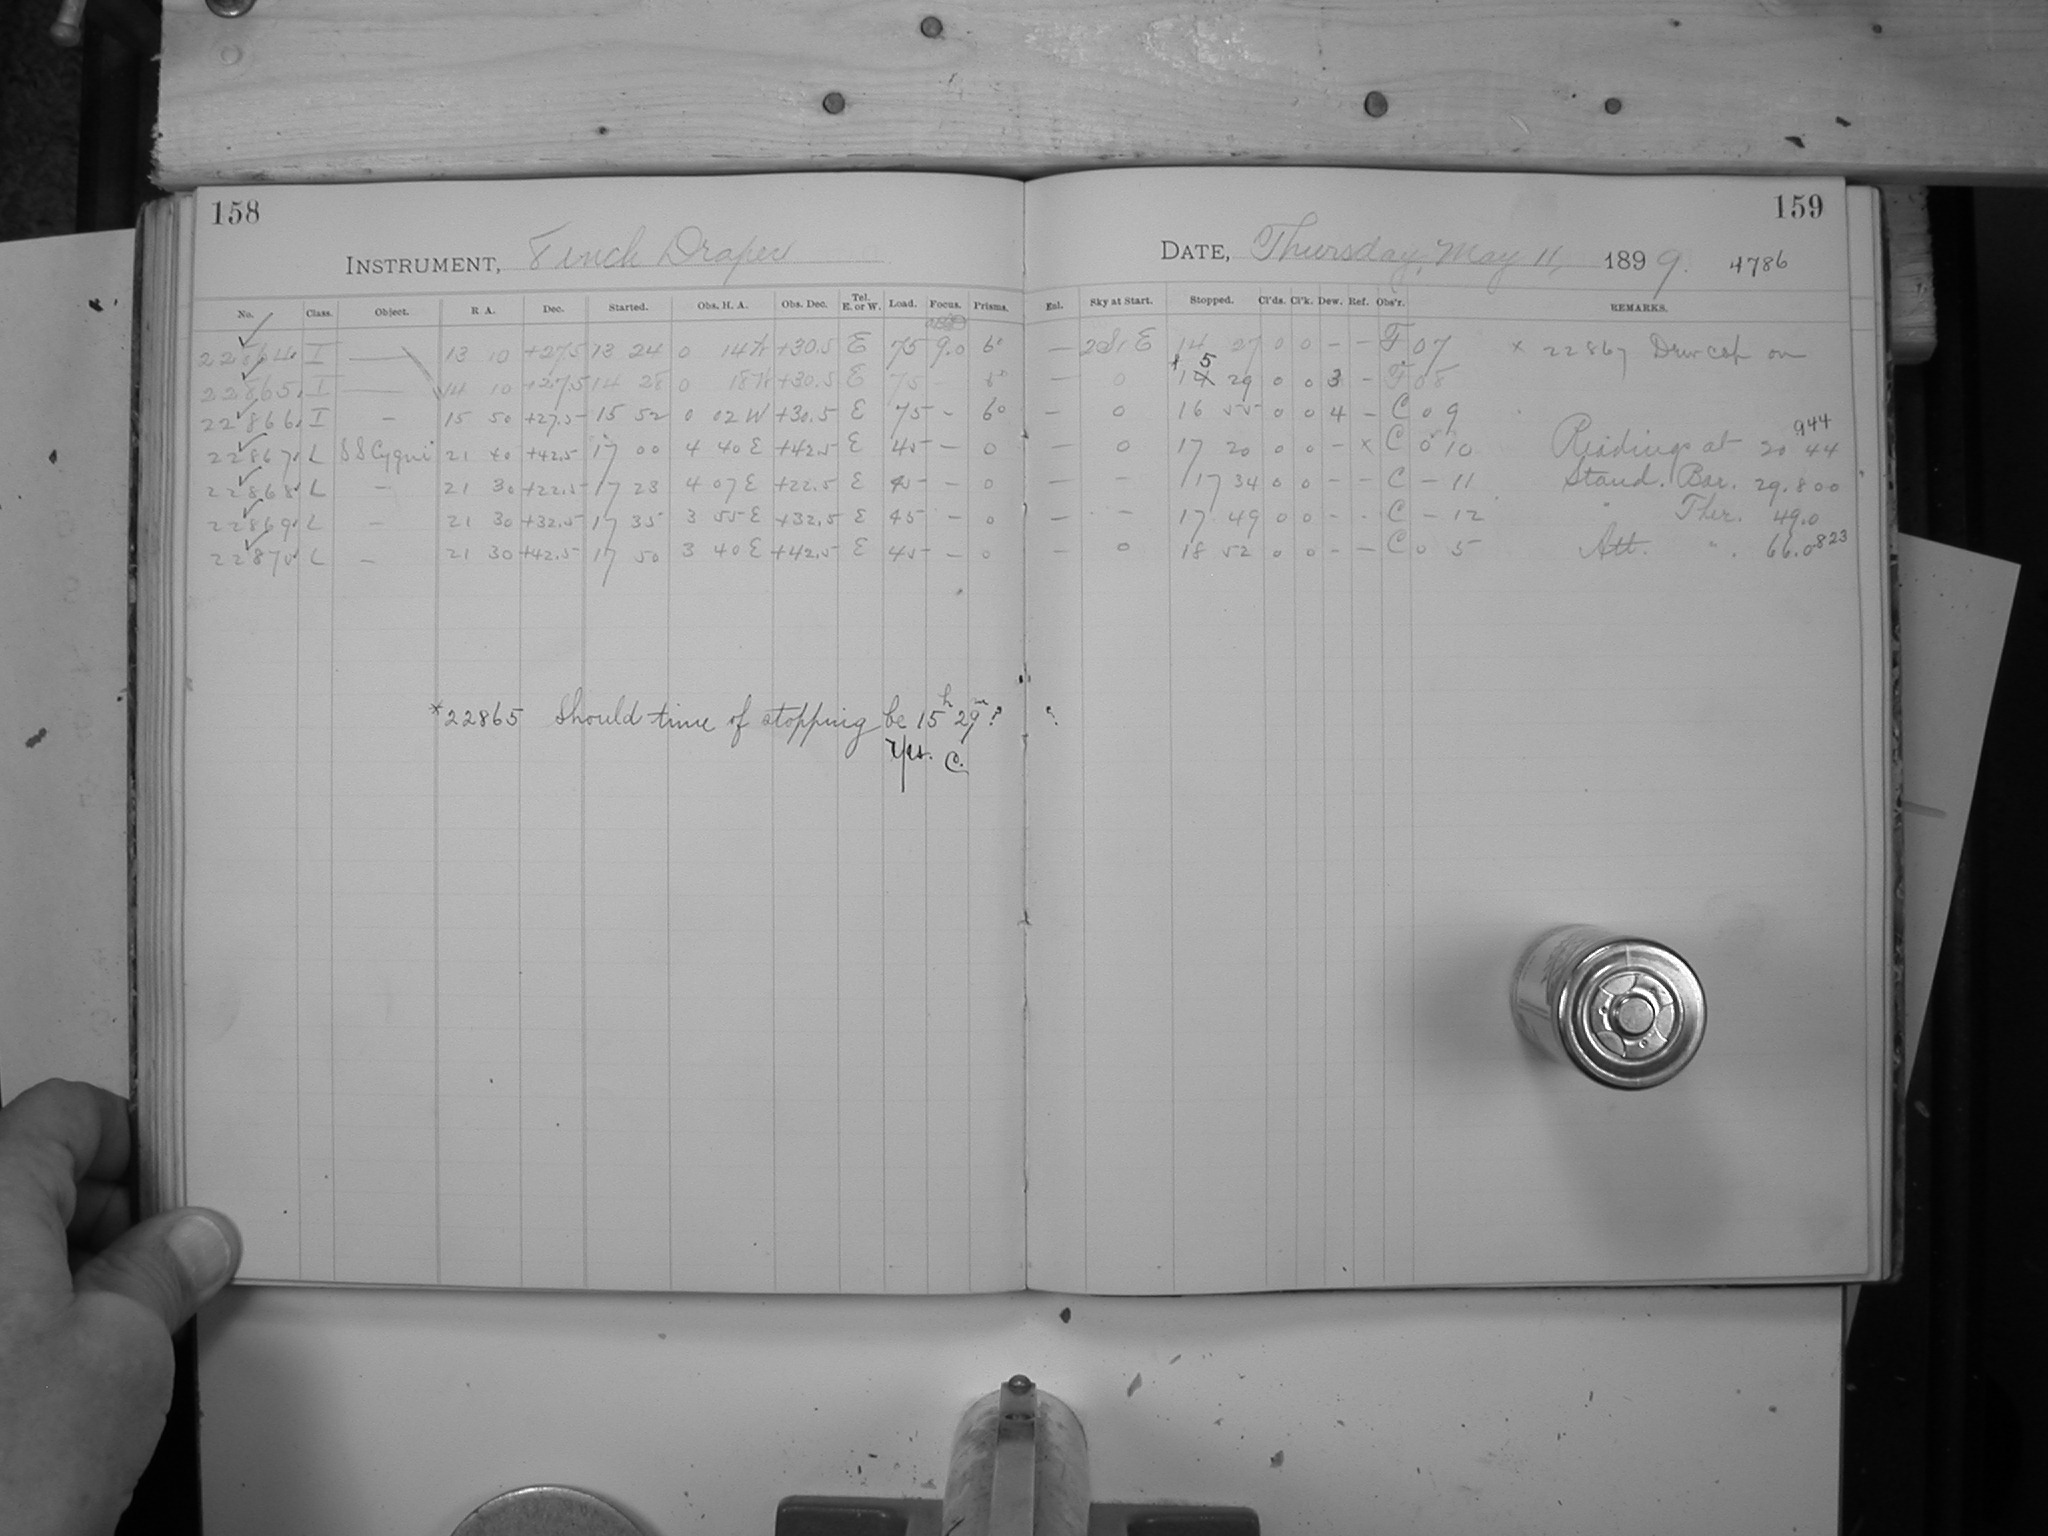 158
INSTRUMENT, 8 inch Draper
No. Class. Object. R A. Dec. Started. Obs. H. A. Obs. Dec. Tel. E. or W. Load. Focus. Prisms.
22864 I — 13 10 +27.5 13 24 0 14 +30.5 E 75 9.0 6°
22865 I — 14 10 +27.5 14 28 0 18 +30.5 E 75 - 6°
22866 I — 15 50 +27.5 15 52 0 02 W +30.5 E 75 - 6°
22867 L SS Cygni 21 40 +42.5 17 00 4 40 E +42.5 E 45 — 0
22868 L — 21 30 +22.5 17 23 4 07 E +22.5 E 45 — 0
22869 L — 21 30 +32.5 17 35 3 55 E +32.5 E 45 — 0
22870 L — 21 30 +42.5 17 50 3 40 E +42.5 E 45 — 0
*22865 Should time of stopping be 15h 29m?
Yes. C.
159
DATE, Thursday, May 11, 1899. 4786
Enl. Sky at Start. Stopped. Cl'ds. Cl'k. Dew. Ref. Obs'r. REMARKS.
— E 14 27 0 0 - - F 07 x 22867 Dewcap on
* 5
— 0 14 29 0 0 3 - F 08
— 0 16 55 0 0 4 - C 0 9
944
— 0 17 20 0 0 - x C 0 10 Readings at 20 44
— — 17 34 0 0 - - C - 11 Stand. Bar. 29.800
— — 17 49 0 0 - - C - 12 " Ther. 49.0
— 0 18 52 0 0 - - C 0 5 Att. " 66.0 823